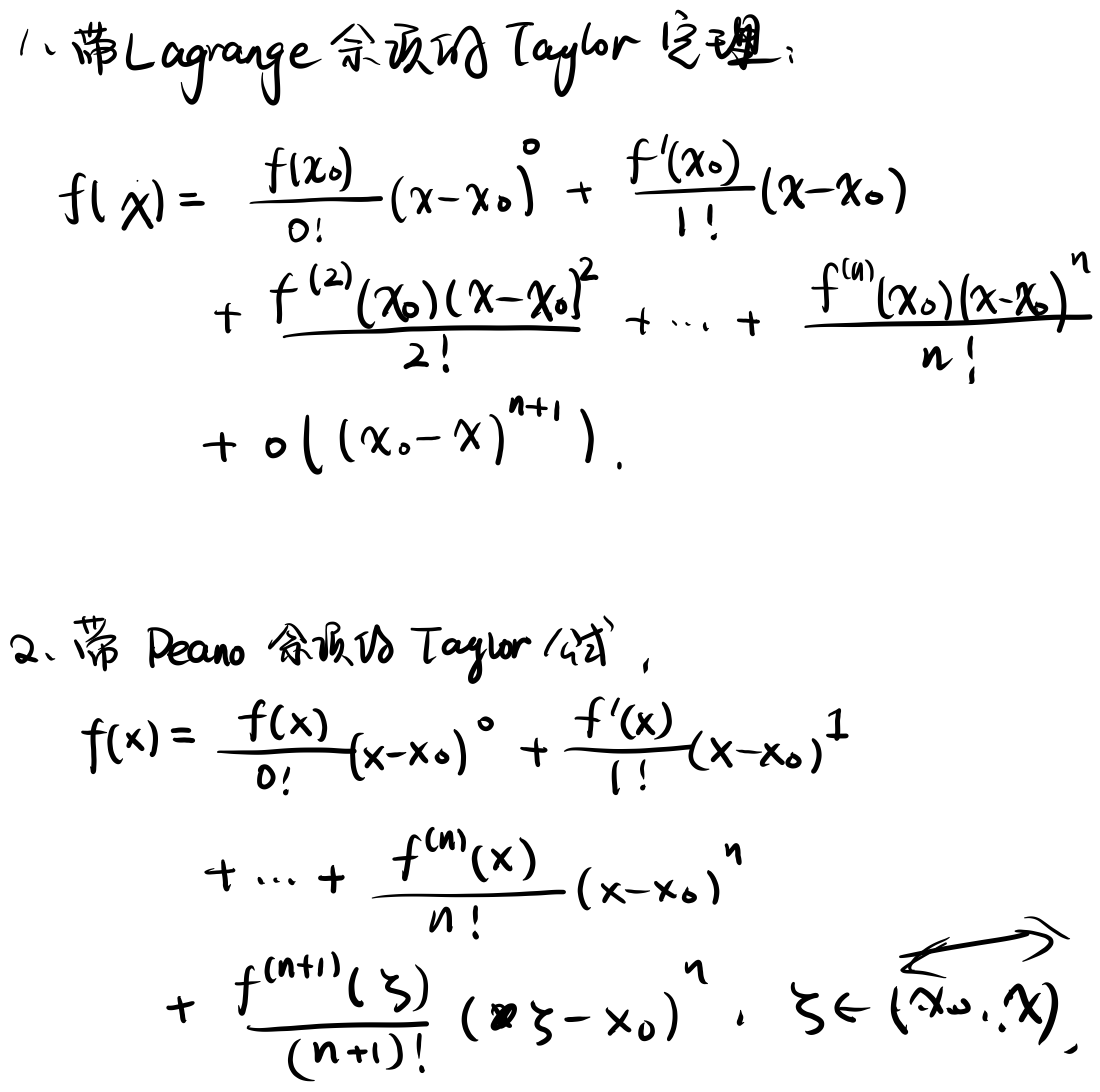 1、带Lagrange 余项的 Taylor 定理:
f(x) = \frac{f(x_0)}{0!}(x-x_0)^0 + \frac{f'(x_0)}{1!}(x-x_0)
+ \frac{f^{(2)}(x_0)(x-x_0)^2}{2!} + ... + \frac{f^{(n)}(x_0)(x-x_0)^n}{n!}
+ o((x_0-x)^{n+1}).
2、带 Peano 余项的 Taylor 公式,
f(x) = \frac{f(x)}{0!}(x-x_0)^0 + \frac{f'(x)}{1!}(x-x_0)^1
+ ... + \frac{f^{(n)}(x)}{n!}(x-x_0)^n
+ \frac{f^{(n+1)}(ξ)}{(n+1)!}(ξ-x_0)^n , ξ∈(x_0, x),